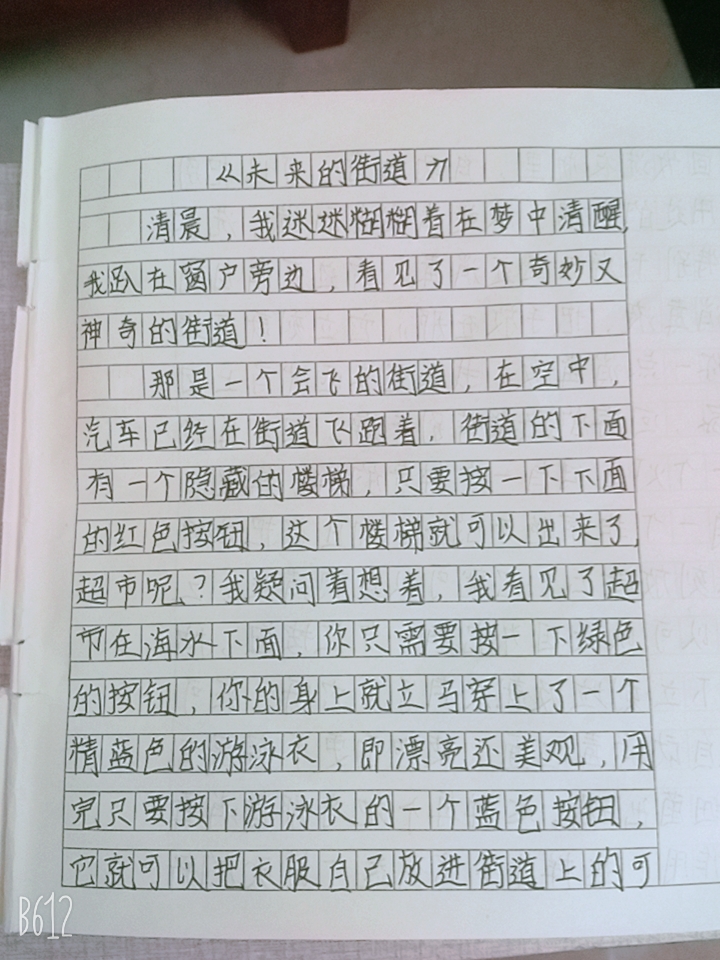 《未来的街道》
清晨，我迷迷糊糊着在梦中清醒，
我趴在窗户旁边，看见了一个奇妙又
神奇的街道！
那是一个会飞的街道，在空中，
汽车已经在街道飞跑着，街道的下面
有一个隐藏的楼梯，只要按一下下面
的红色按钮，这个楼梯就可以出来了，
超市呢？我疑问着想着，我看见了超
市在海水下面，你只需要按一下绿色
的按钮，你的身上就立马穿上了一个
精蓝色的游泳衣，即漂亮还美观，用
完只要按下游泳衣的一个蓝色按钮，
它就可以把衣服自己放进街道上的可
B612